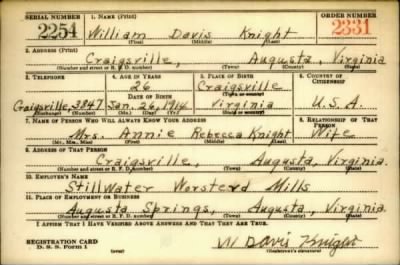 SERIAL NUMBER 1. NAME (Print) ORDER NUMBER
2254 William Davis Knight 2331
(First) (Middle) (Last)
2. ADDRESS (Print)
Craigsville, Augusta, Virginia
(Number and street or R. F. D. number) (Town) (County) (State)
3. TELEPHONE 4. AGE IN YEARS 5. PLACE OF BIRTH 6. COUNTRY OF CITIZENSHIP
26 Craigsville
DATE OF BIRTH (Town or county)
Craigsville, 3847 Jan. 26, 1914 Virginia U.S.A.
(Exchange) (Number) (Mo.) (Day) (Yr.) (State or country)
7. NAME OF PERSON WHO WILL ALWAYS KNOW YOUR ADDRESS 8. RELATIONSHIP OF THAT PERSON
Mrs. Annie Rebecca Knight Wife
(Mr., Mrs., Miss) (First) (Middle) (Last)
9. ADDRESS OF THAT PERSON
Craigsville, Augusta, Virginia
(Number and street or R. F. D. number) (Town) (County) (State)
10. EMPLOYER'S NAME
StillWater Worsterd Mills
11. PLACE OF EMPLOYMENT OR BUSINESS
Augusta Springs, Augusta, Virginia
(Number and street or R. F. D. number) (Town) (County) (State)
I AFFIRM THAT I HAVE VERIFIED ABOVE ANSWERS AND THAT THEY ARE TRUE.
REGISTRATION CARD
D. S. S. Form 1 (over) W Davis Knight
(Registrant's signature)